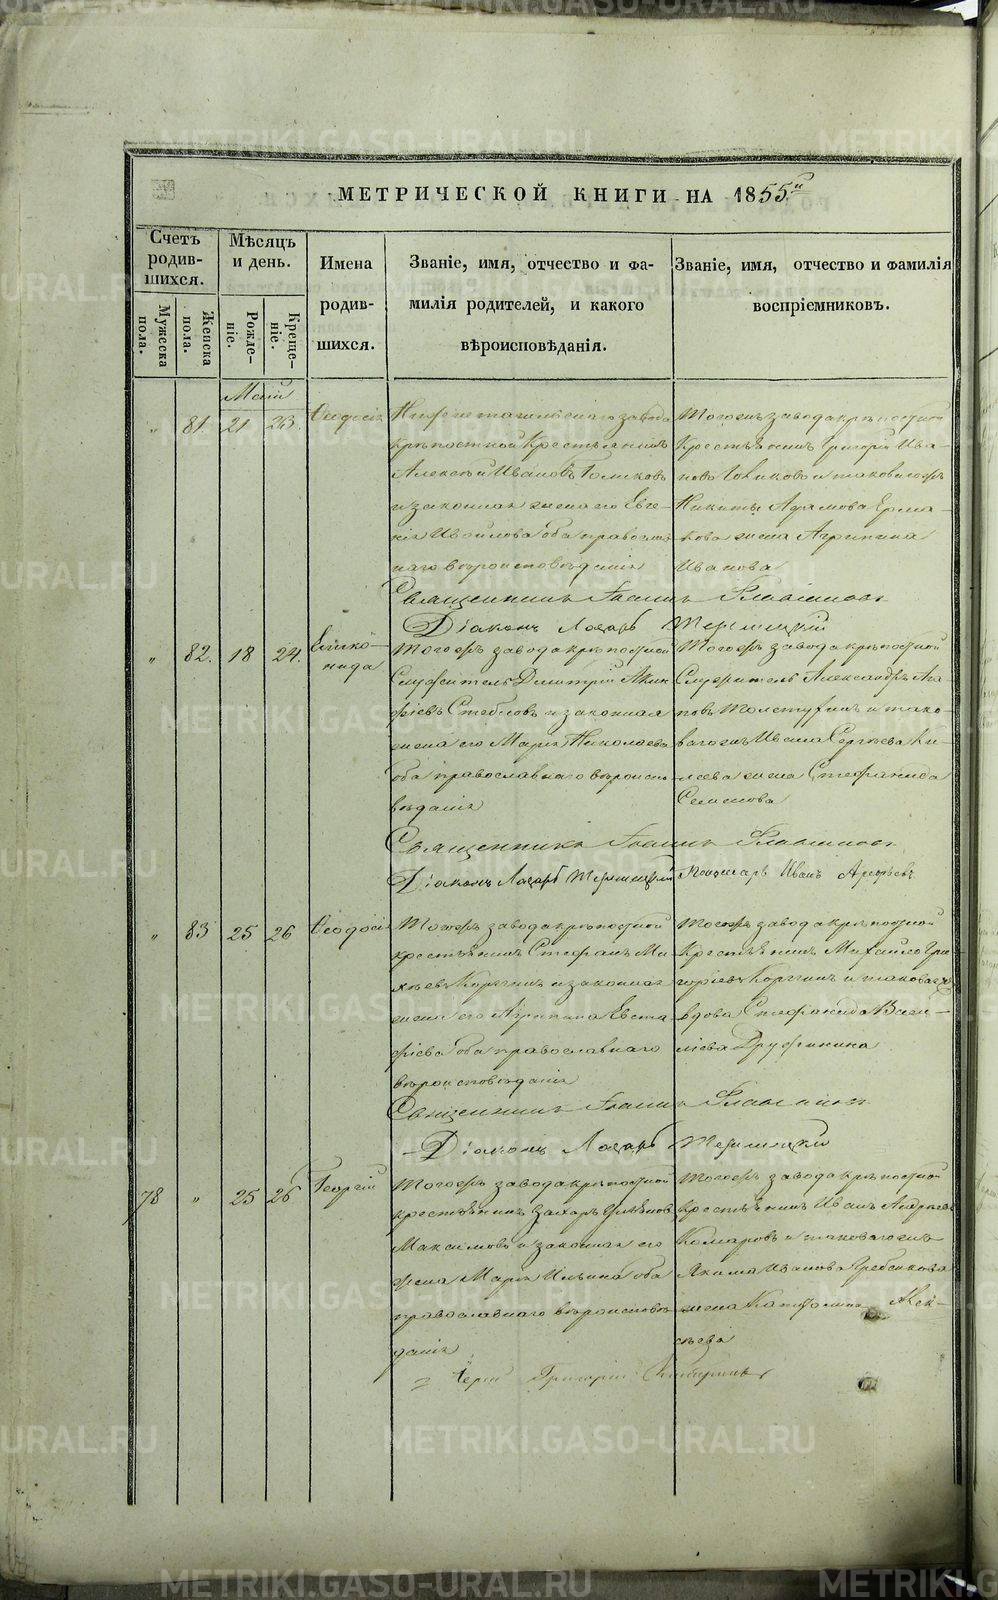 МЕТРИЧЕСКОЙ КНИГИ НА 1855й
Счетъ родив-шихся.
Мужеска пола.
Женска пола.
Мѣсяцъ и день.
Рожде-ніе.
Креще-ніе.
Имена
родив-
шихся.
Званіе, имя, отчество и фа-
милія родителей, и какого
вѣроисповѣданія.
Званіе, имя, отчество и фамилія
воспріемниковъ.
Маій
" 81. 21 23. Ѳеодосія
Нижнетагильскаго завода
крѣпостной Крестьянинъ
Алексѣй Ивановъ
и законная жена его Евге-
нія оба православ
наго вѣроисповѣданія
Тогожъ завода крѣпостной
Крестьянинъ Григорій Ива-
новъ и таковагожъ
Никиты Абрамова Ерма-
кова жена Агрипина
Иванова
Священникъ Іоаннъ
Діаконъ Лазарь
" 82. 18 24.
нида
Тогожъ завода крѣпостной
Служитель Дмитрій Акин
фіевъ и законная
жена его Марія Николаева
оба православнаго вѣроиспо
вѣданія
Тогожъ завода крѣпостной
Служитель Александръ Ага
повъ и тако-
вагожъ Ивана Сергѣева
жена Стефанида
Семенова
Священникъ Іоаннъ
Діаконъ Лазарь
Пономарь Иванъ
" 83 25 26 Ѳеодосія
Тогожъ завода крѣпостной
крестьянинъ Стефанъ Ми-
хѣевъ и законная
жена его Агрипина Евста
фіева оба православнаго
вѣроисповѣданія
Тогожъ завода крѣпостной
Крестьянинъ Михайло Гри
горіевъ и таковаяжъ
вдова Стефанида Васи-
ліева Дружинина
Священникъ Іоаннъ
Діаконъ Лазарь
78 " 25 26 Георгій
Тогожъ завода крѣпостной
крестьянинъ Захаръ Ульяновъ
Максимовъ и законная его
жена Марія Ильина оба
православнаго вѣроисповѣ
данія
Тогожъ завода крѣпостной
крестьянинъ Иванъ Андреевъ
Комаровъ и таковагожъ
Якима Иванова Гребенкова
жена Алек-
сѣева
Іерей Григорій
METRIKI.GASO-URAL.RU